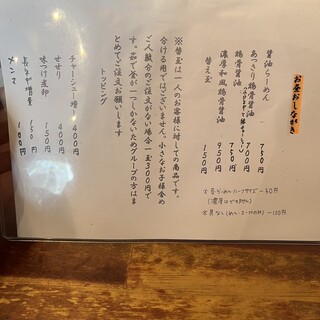 お昼おしながき
醤油らーめん 750円
あっさり鶏醤油 700円
鶏骨醤油 750円
濃厚和風鶏骨醤油 950円
替え玉 150円
※替玉は一人のお客様に対しての商品です。
分ける用ではございません。小さなお子様含め
ご人数分のご注文がない場合一玉300円で
す。茹で釜が一つしかないためグループの方はま
とめてご注文お願いします
トッピング
チャーシュー増 400円
せせり 400円
味つけ玉卵 150円
長ネギ増量 150円
メンマ 100円